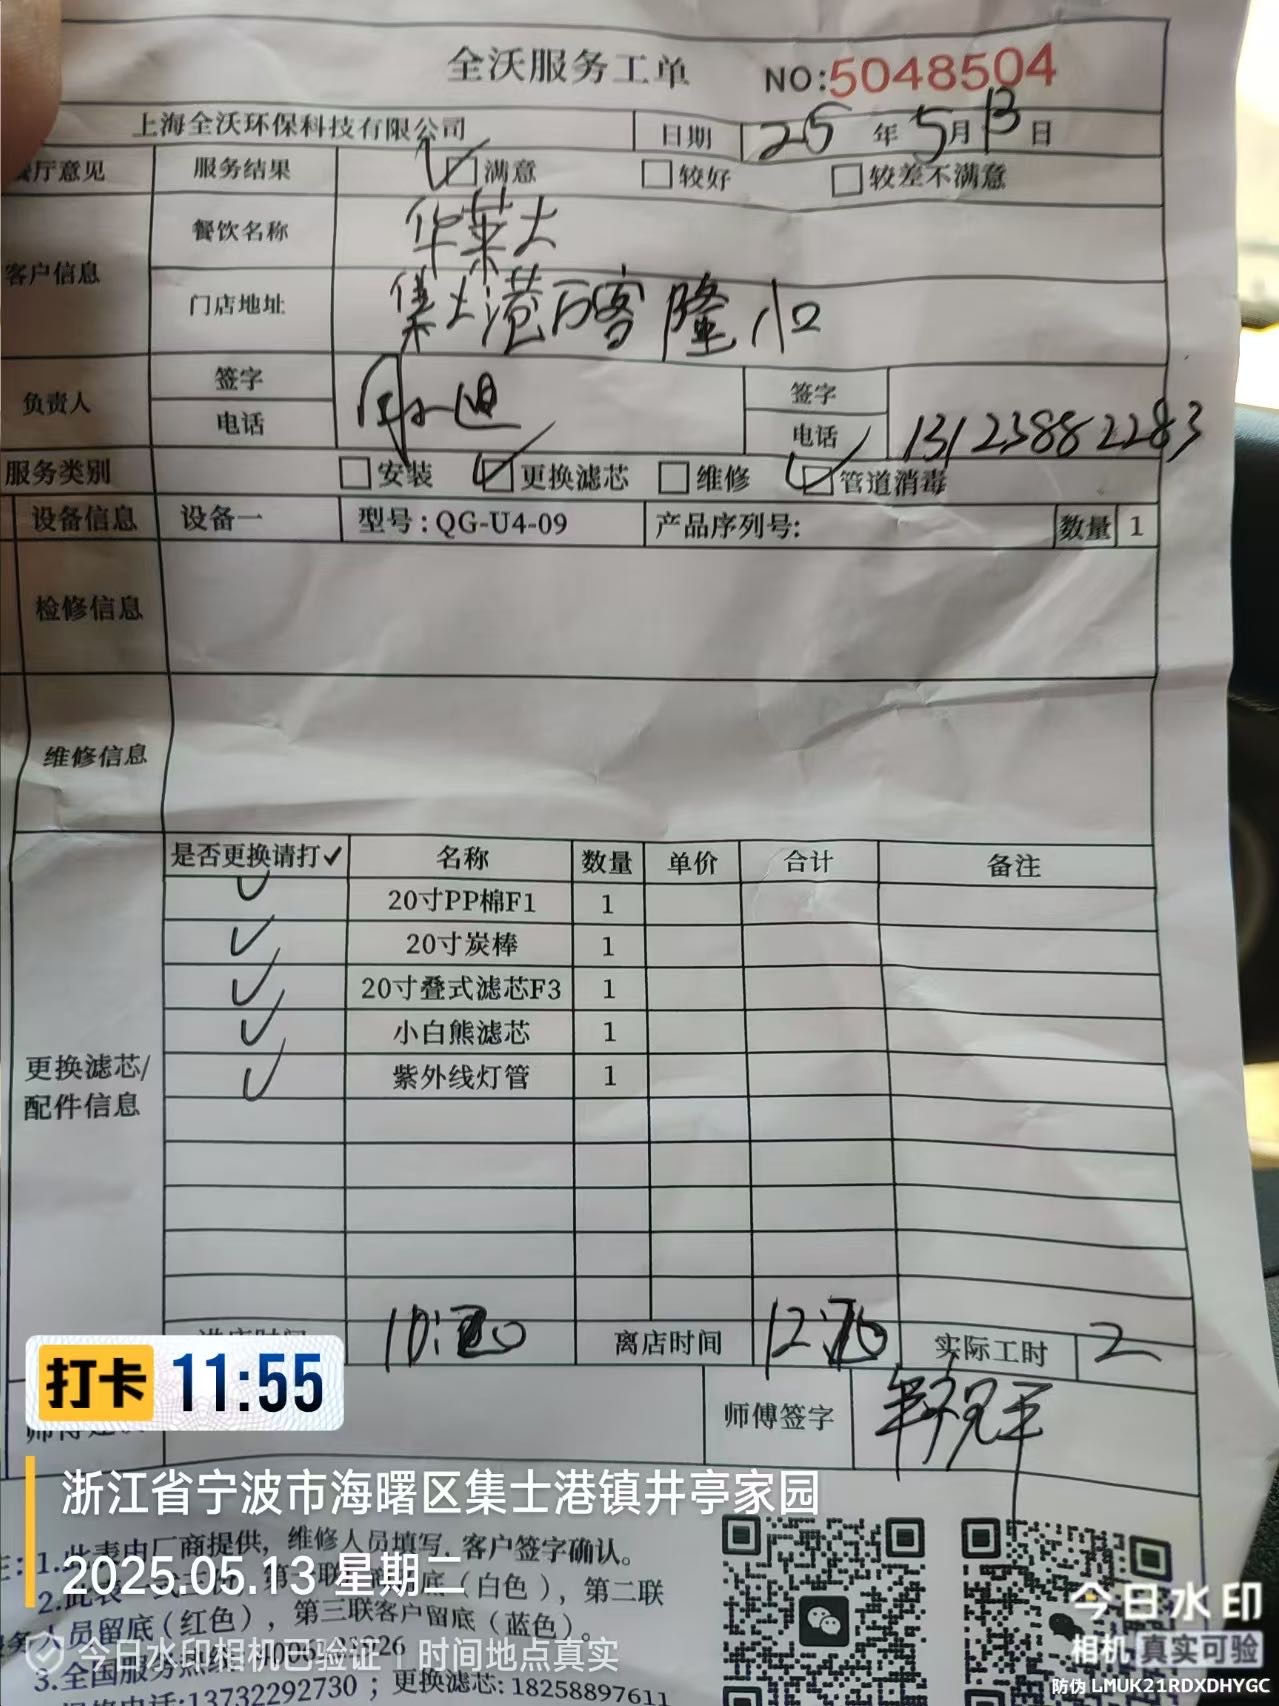 全沃服务工单 NO:5048504
上海全沃环保科技有限公司 日期 25年5月13日
餐厅意见 服务结果 满意 较好 较差不满意
客户信息 餐饮名称 华莱士
门店地址 集士港万客隆
负责人 签字 签字
电话 电话 13123882283
服务类别 安装 更换滤芯 维修 管道消毒
设备信息 设备一 型号:QG-U4-09 产品序列号: 数量 1
检修信息
维修信息
是否更换请打✓ 名称 数量 单价 合计 备注
✓ 20寸PP棉F1 1
✓ 20寸炭棒 1
✓ 20寸叠式滤芯F3 1
✓ 小白熊滤芯 1
更换滤芯/
配件信息
✓ 紫外线灯管 1
离店时间 实际工时 2
打卡 11:55
师傅签字
浙江省宁波市海曙区集士港镇井亭家园
1.此表由厂商提供,维修人员填写,客户签字确认。
2025.05.13 星期二
(白色),第二联
人员留底(红色),第三联客户留底(蓝色)。
今日水印相机已验证 时间地点真实
3.全国服务热线
电话:13732292730;更换滤芯:18258897611
今日水印
相机 真实可验
防伪 LMUK21RDXDHYGC